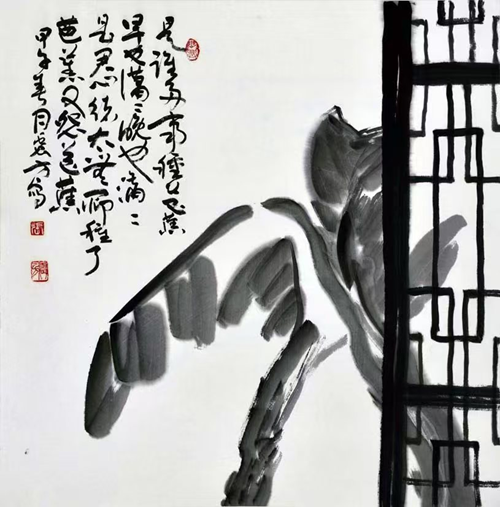 是谁多事種芭蕉
早也潇潇晚也潇潇
是君心绪太无聊種了
芭蕉又怨芭蕉
甲午春月